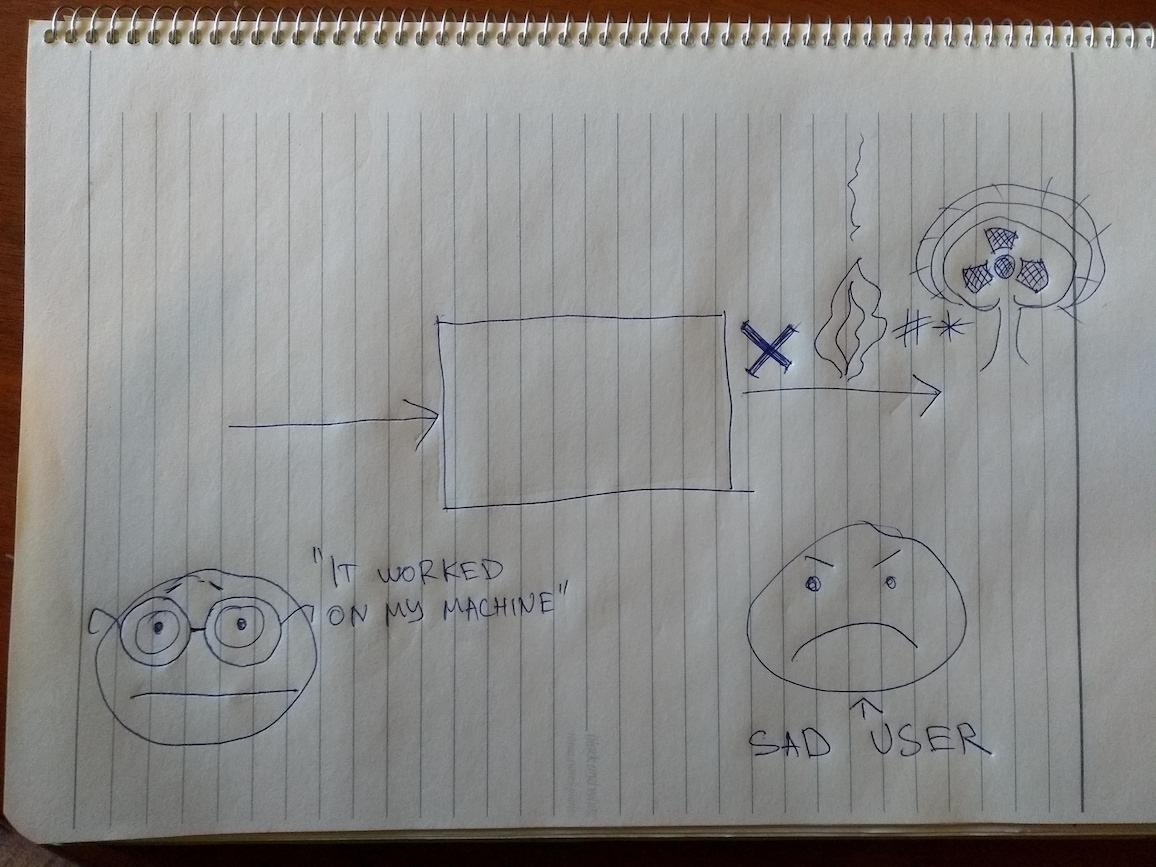 # *
"IT WORKED
ON MY MACHINE"
SAD USER